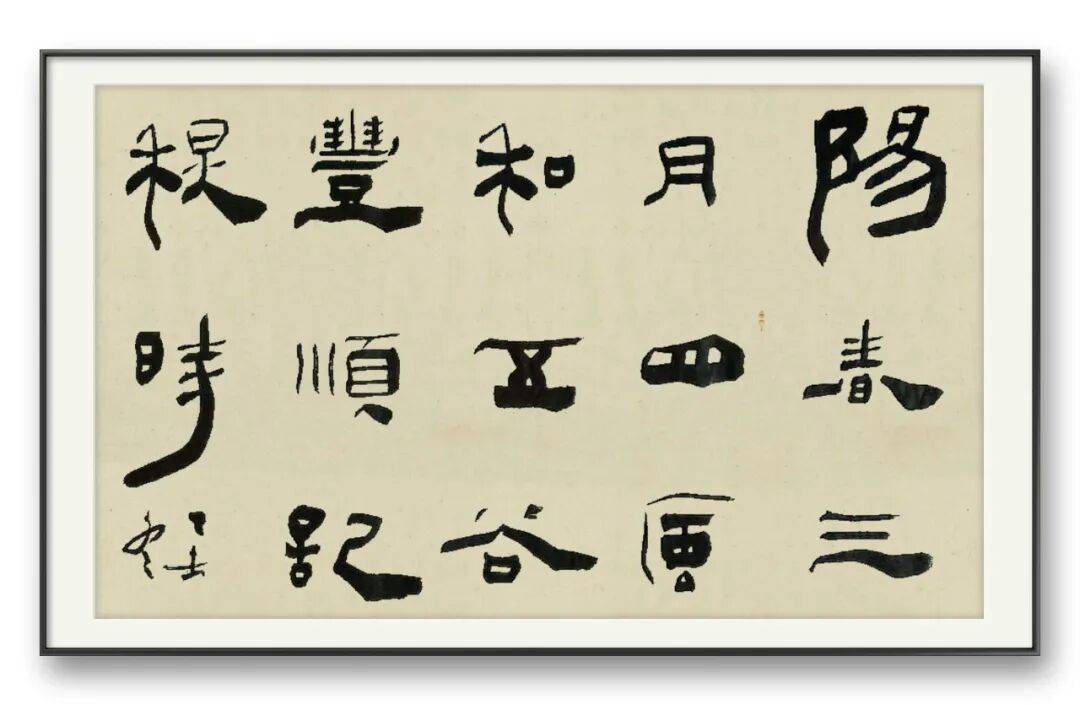 陽春三
月四
和五谷
豐順記
時